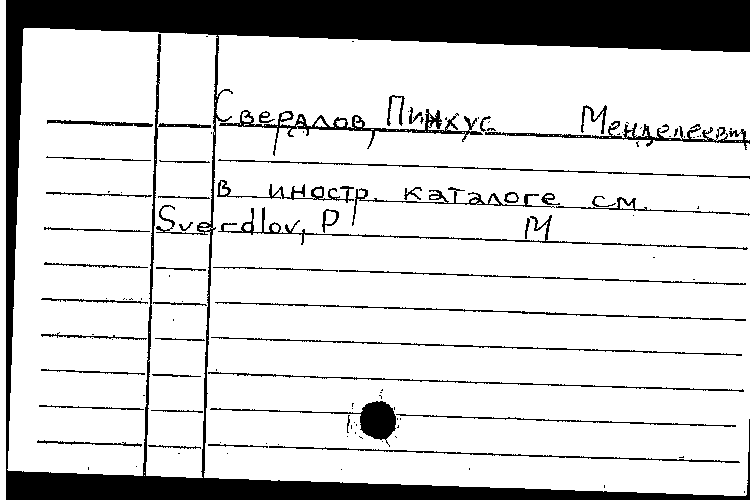 Свердлов, Пинхус Менделеевич
в иностр. каталоге см.
Sverdlov, P M